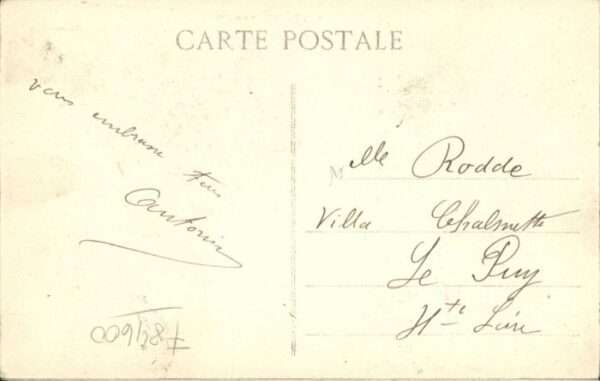 CARTE POSTALE
vous embrasse tous
Antonin
Mlle Rodde
Villa Chalmette
Le Puy
Hte Loire